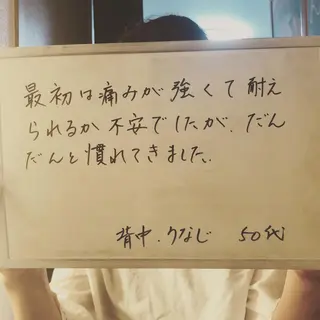 最初は痛みが強くて耐え
られるか不安でしたが、だん
だんと慣れてきました。
背中、うなじ 50代